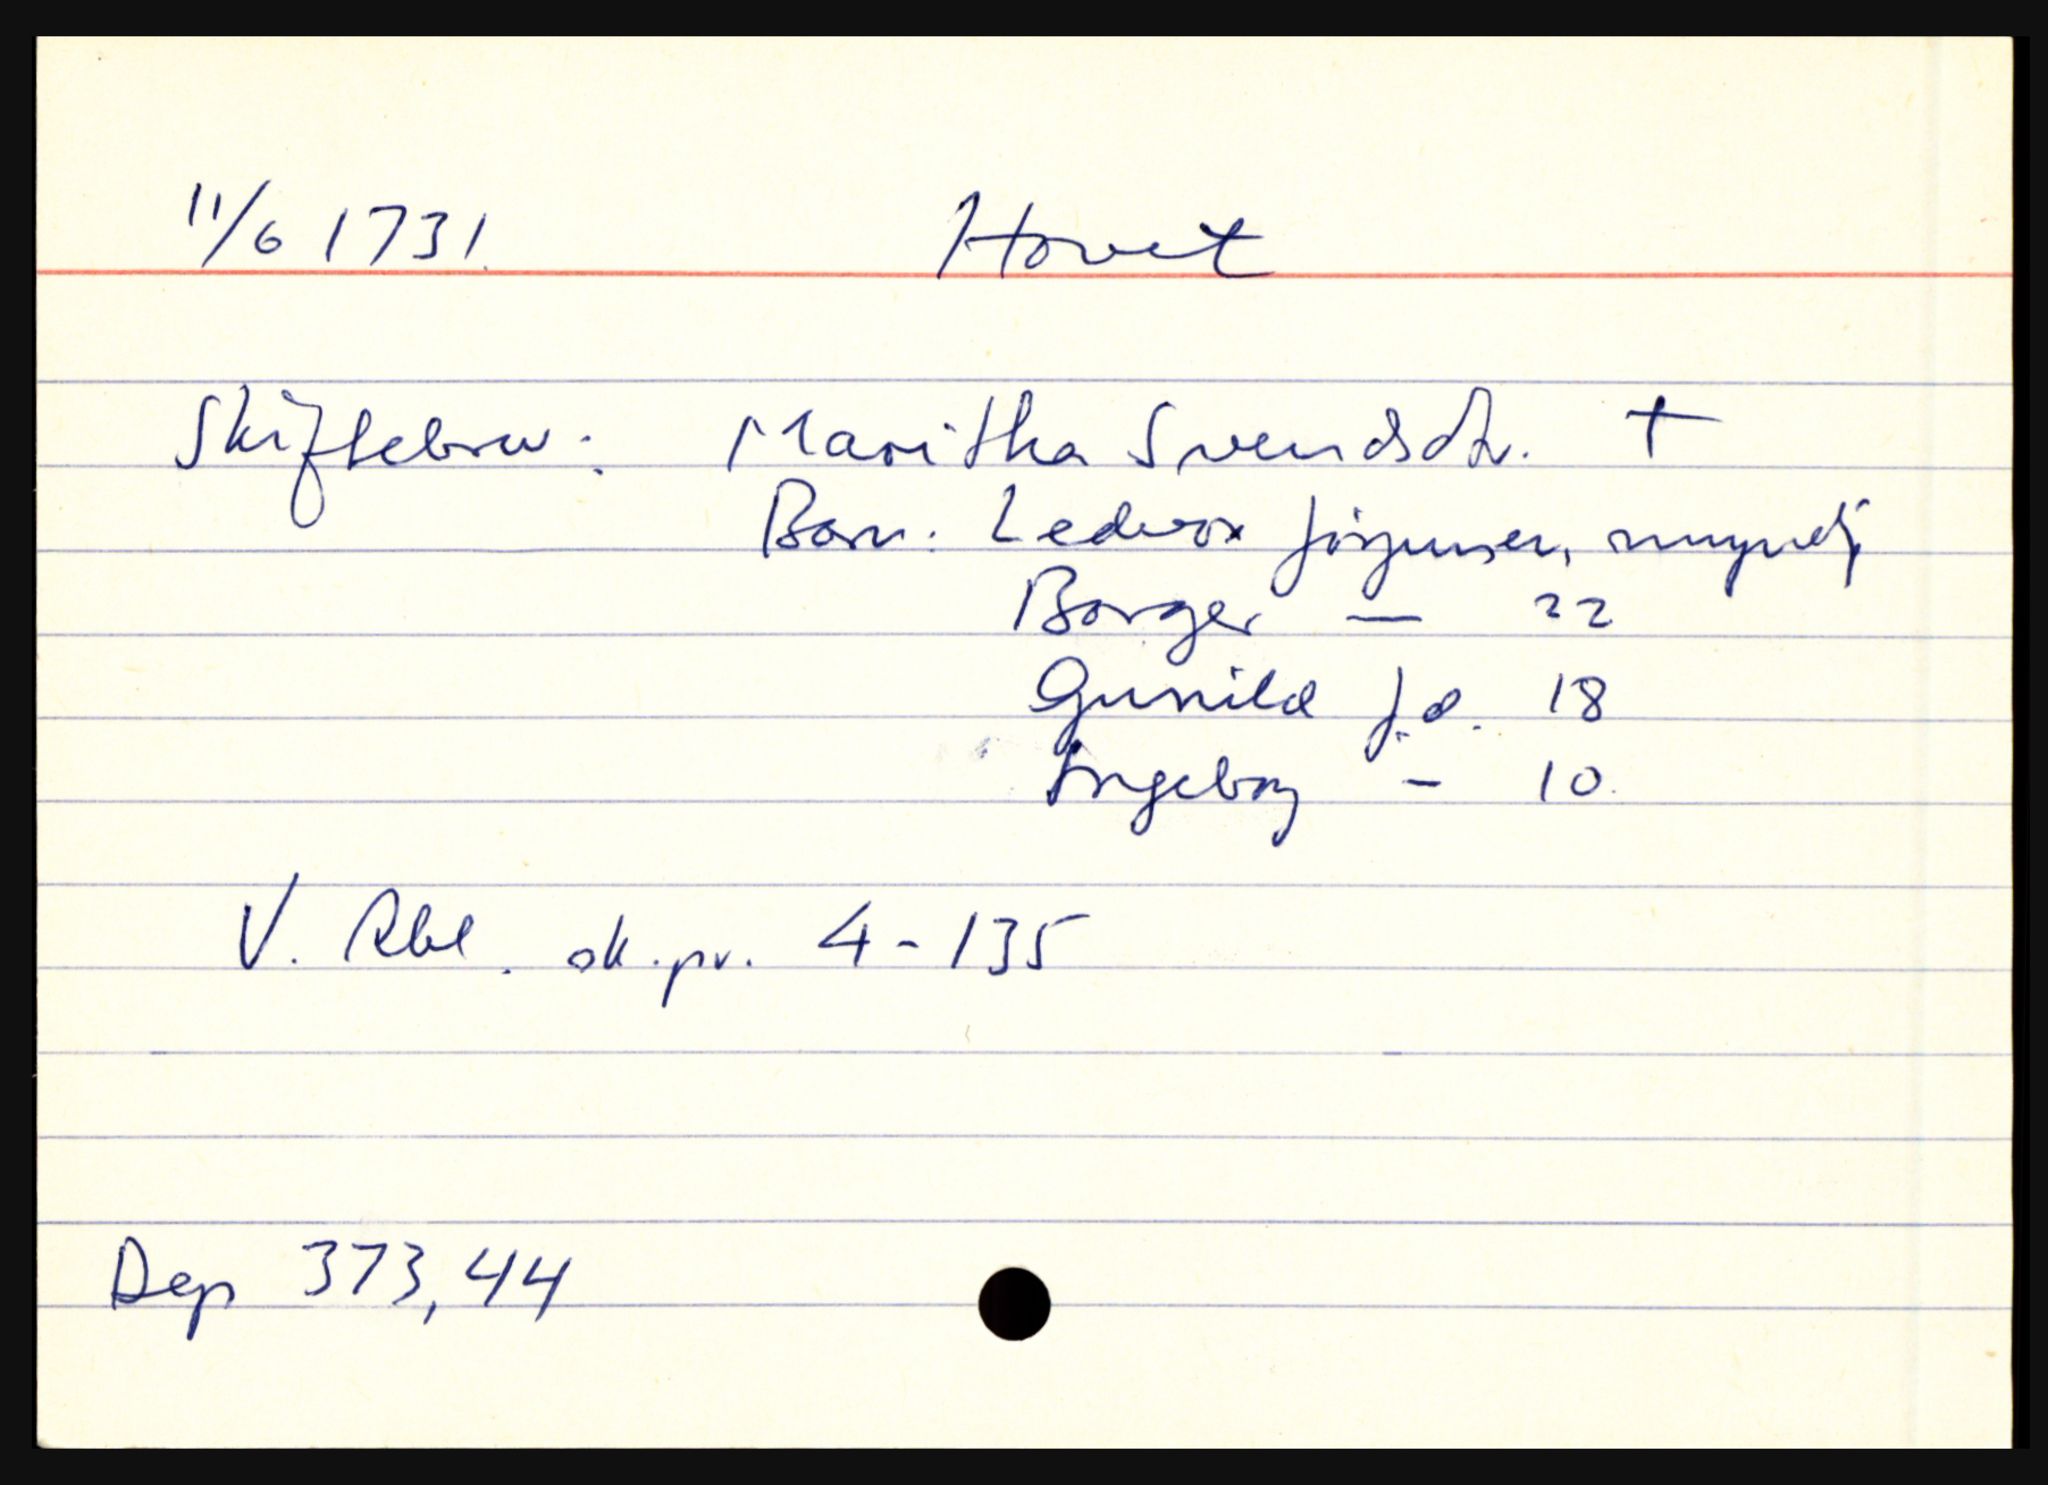 11/6 1731. Hovet
Skiftebrev: Maritha Svendsdtr. †
Barn: Ledvor Jörgensen, myndig
Borger — 22
Gunild J.d. 18
Ingeborg - 10.
V. Rbl. sk.pr. 4-135
Dep 373,44